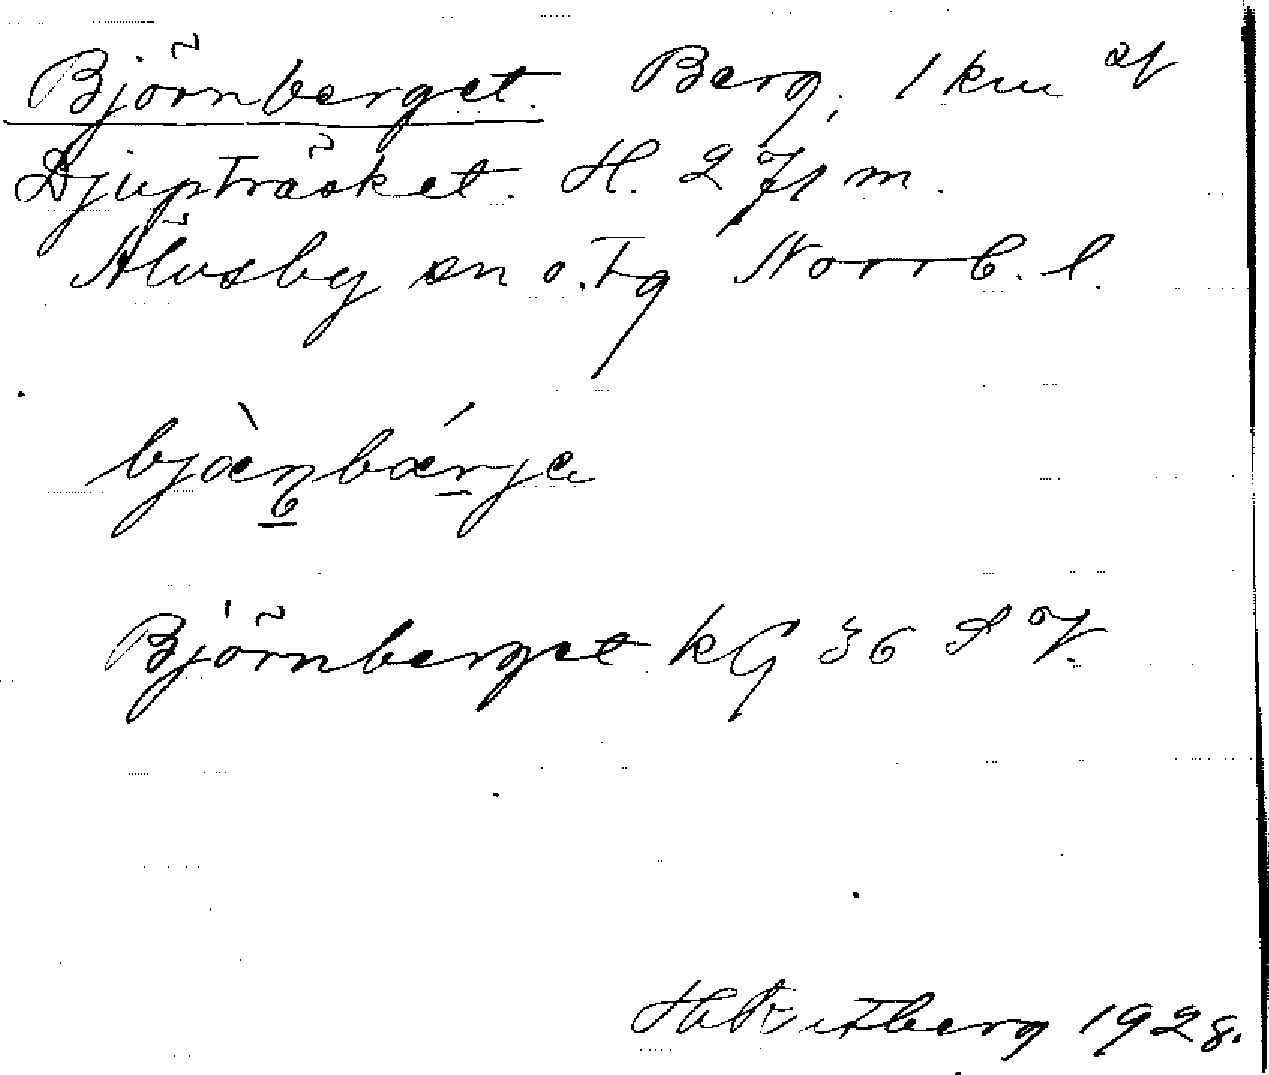 Björnberget. Berg, 1 km av
Djupträsket. H. 271 m.
Älvsby sn o. tg Norrb. l.
bjæ̀n̥bǽrja
Björnberget kG 36 S V.
1928.